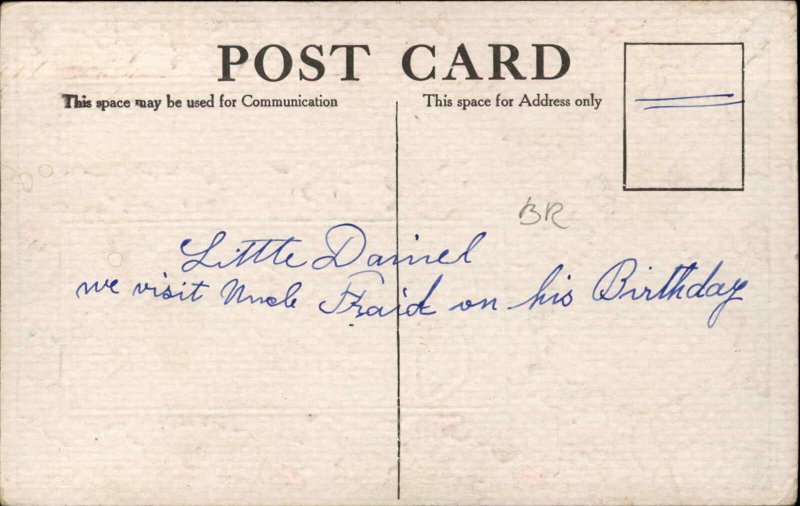 POST CARD
This space may be used for Communication
This space for Address only
BR
Little Daniel
we visit Uncle on his Birthday